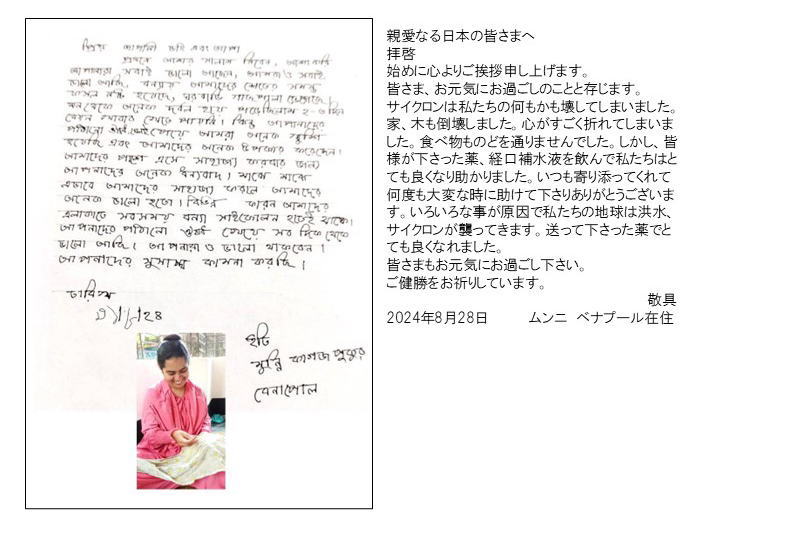 প্রিয় জাপানী ভাই এবং আপা
প্রথমে আমার সালাম নিবেন, আশা করি
আপনারা সবাই ভালো আছেন, আমরাও সবাই
ভালো আছি, বন্যায় আমাদের ক্ষেতের সমস্ত
ফসল নষ্ট হয়েছে, ঘরবাড়ি গাছপালা ভেঙেছে।
খাবার খেতে পারিনি। কিন্তু আপনাদের
পাঠানো ঔষধ খেয়ে আমরা অনেক সুস্থ
হয়েছি এবং আমাদের অনেক উপকার করেছেন।
আমাদের পাশে এসে সাহায্য করবার জন্য
আপনাদের অনেক ধন্যবাদ। মাঝে মাঝে
এভাবে আমাদের সাহায্য করলে আমাদের
অনেক ভালো হতো। বিভিন্ন কারন আমাদের
এলাকাতে সবসময় বন্যা সাইক্লোন হতেই থাকে।
আপনাদের পাঠানো ঔষধ খেয়ে সব দিক থেকে
ভালো আছি। আপনারাও ভালো থাকবেন।
আপনাদের সুস্বাস্থ্য কামনা করছি।
তারিখ
ইতি
মুন্নি কাগজ পুকুর
বেনাপোল
親愛なる日本の皆さまへ
拝啓
始めに心よりご挨拶申し上げます。
皆さま、お元気にお過ごしのことと存じます。
サイクロンは私たちの何もかも壊してしまいました。
家、木も倒壊しました。心がすごく折れてしまいま
した。食べ物ものどを通りませんでした。しかし、皆
様が下さった薬、経口補水液を飲んで私たちはと
ても良くなり助かりました。いつも寄り添ってくれて
何度も大変な時に助けて下さりありがとうございま
す。いろいろな事が原因で私たちの地球は洪水、
サイクロンが襲ってきます。送って下さった薬でと
ても良くなれました。
皆さまもお元気にお過ごし下さい。
ご健勝をお祈りしています。
敬具
2024年8月28日 ムンニ ベナプール在住